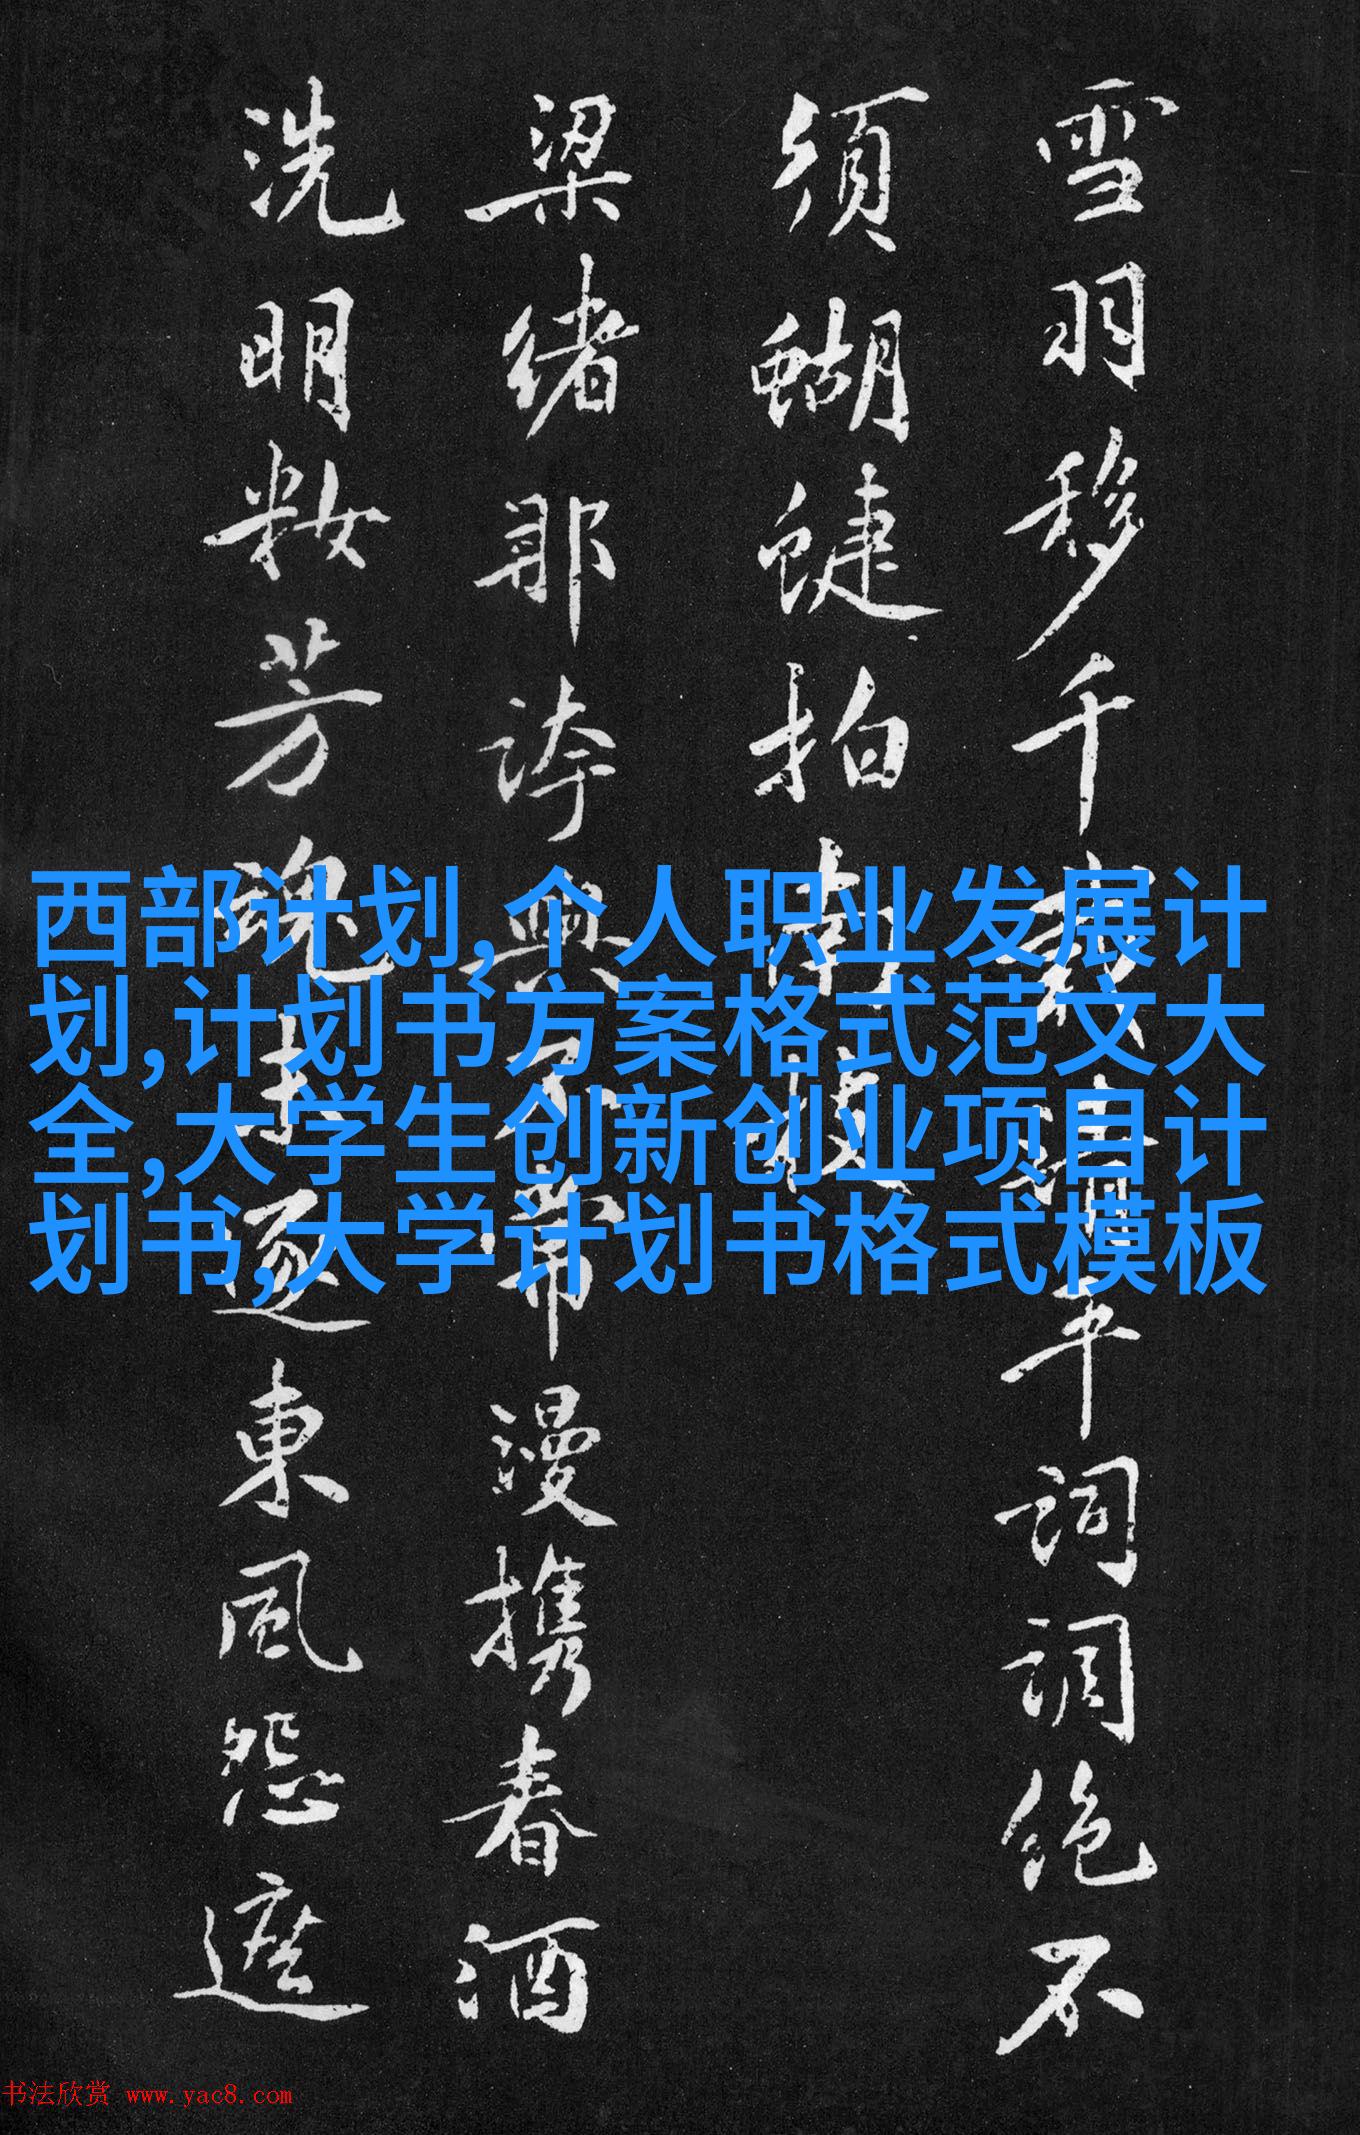 西部计划,个人职业发展计
划,计划书方案格式范文大
全,大学生创新创业项目计
划书,大学计划书格式模板
雪羽移千清平詞調絶不
須蝴蝶拍南
梁緒那誇不漫攜春酒
洗明籹芳魂未逐東風怨遮
书法欣赏 www.yac8.com